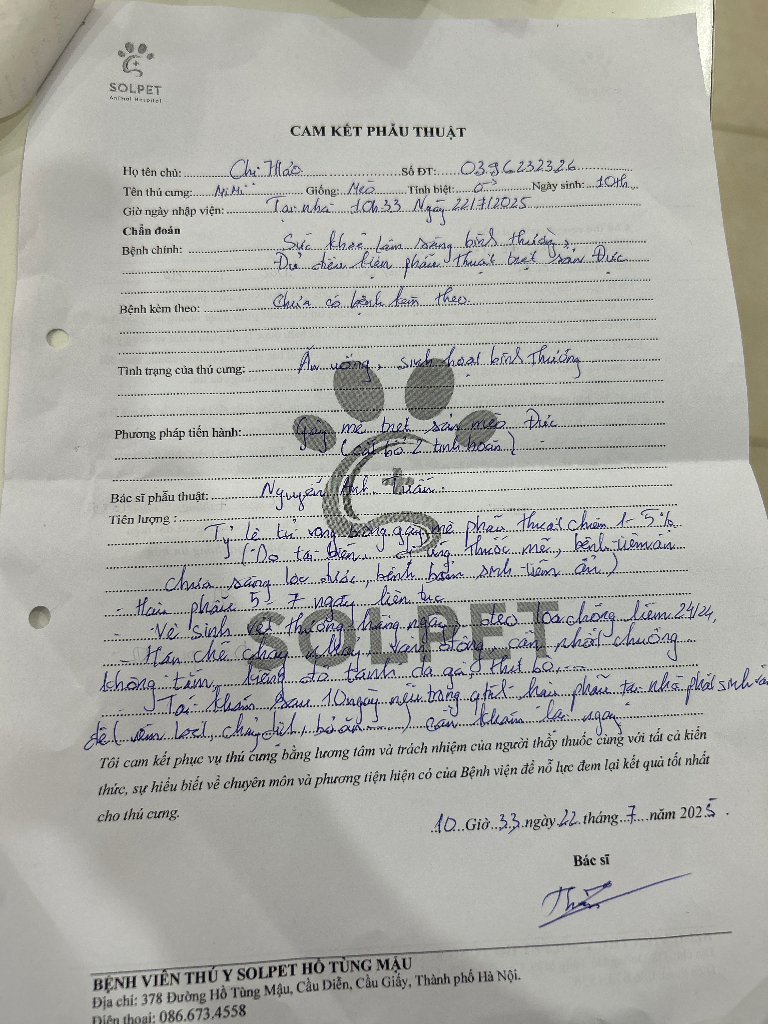 SOLPET
Animal Hospital
CAM KẾT PHẪU THUẬT
Họ tên chủ: Chị Thảo Số ĐT: 0396232326
Tên thú cưng: MiMi Giống: Mèo Tính biệt: ♂ Ngày sinh: 10th
Giờ ngày nhập viện: Tại nhà 10h33 Ngày 22/7/2025
Chẩn đoán
Bệnh chính: Sức khoẻ lâm sàng bình thường,
Đủ điều kiện phẫu thuật triệt sản Đực
Bệnh kèm theo: Chưa có bệnh kèm theo
Tình trạng của thú cưng: Ăn uống, sinh hoạt bình thường
Phương pháp tiến hành: Gây mê triệt sản mèo Đực
(cắt bỏ 2 tinh hoàn)
Bác sĩ phẫu thuật: Nguyễn Anh Tuấn
Tiên lượng : Tỷ lệ tử vong trong gây mê phẫu thuật chiếm 1-5%
(Do tai biến, dị ứng thuốc mê, bệnh tiềm ẩn
chưa sàng lọc được, bệnh bẩm sinh tiềm ẩn)
- Hậu phẫu 5-7 ngày liên tục
- Vệ sinh vết thương hàng ngày, đeo loa chống liếm 24/24,
- Hạn chế chạy nhảy, vận động, cần nhốt chuồng
không tắm, kiêng đồ tanh da gà, thịt bò,...
- Tái khám sau 10 ngày nếu trong qtrình hậu phẫu tại nhà phát sinh vấn
đề ( viêm loét, chảy dịch, bỏ ăn....) cần khám lại ngay
SOLPET
Tôi cam kết phục vụ thú cưng bằng lương tâm và trách nhiệm của người thầy thuốc cùng với tất cả kiến
thức, sự hiểu biết về chuyên môn và phương tiện hiện có của Bệnh viện để nỗ lực đem lại kết quả tốt nhất
cho thú cưng.
10 Giờ 33 ngày 22 tháng 7 năm 2025.
Bác sĩ
BỆNH VIỆN THÚ Y SOLPET HỒ TÙNG MẬU
Địa chỉ: 378 Đường Hồ Tùng Mậu, Cầu Diễn, Cầu Giấy, Thành phố Hà Nội.
Điện thoại: 086.673.4558